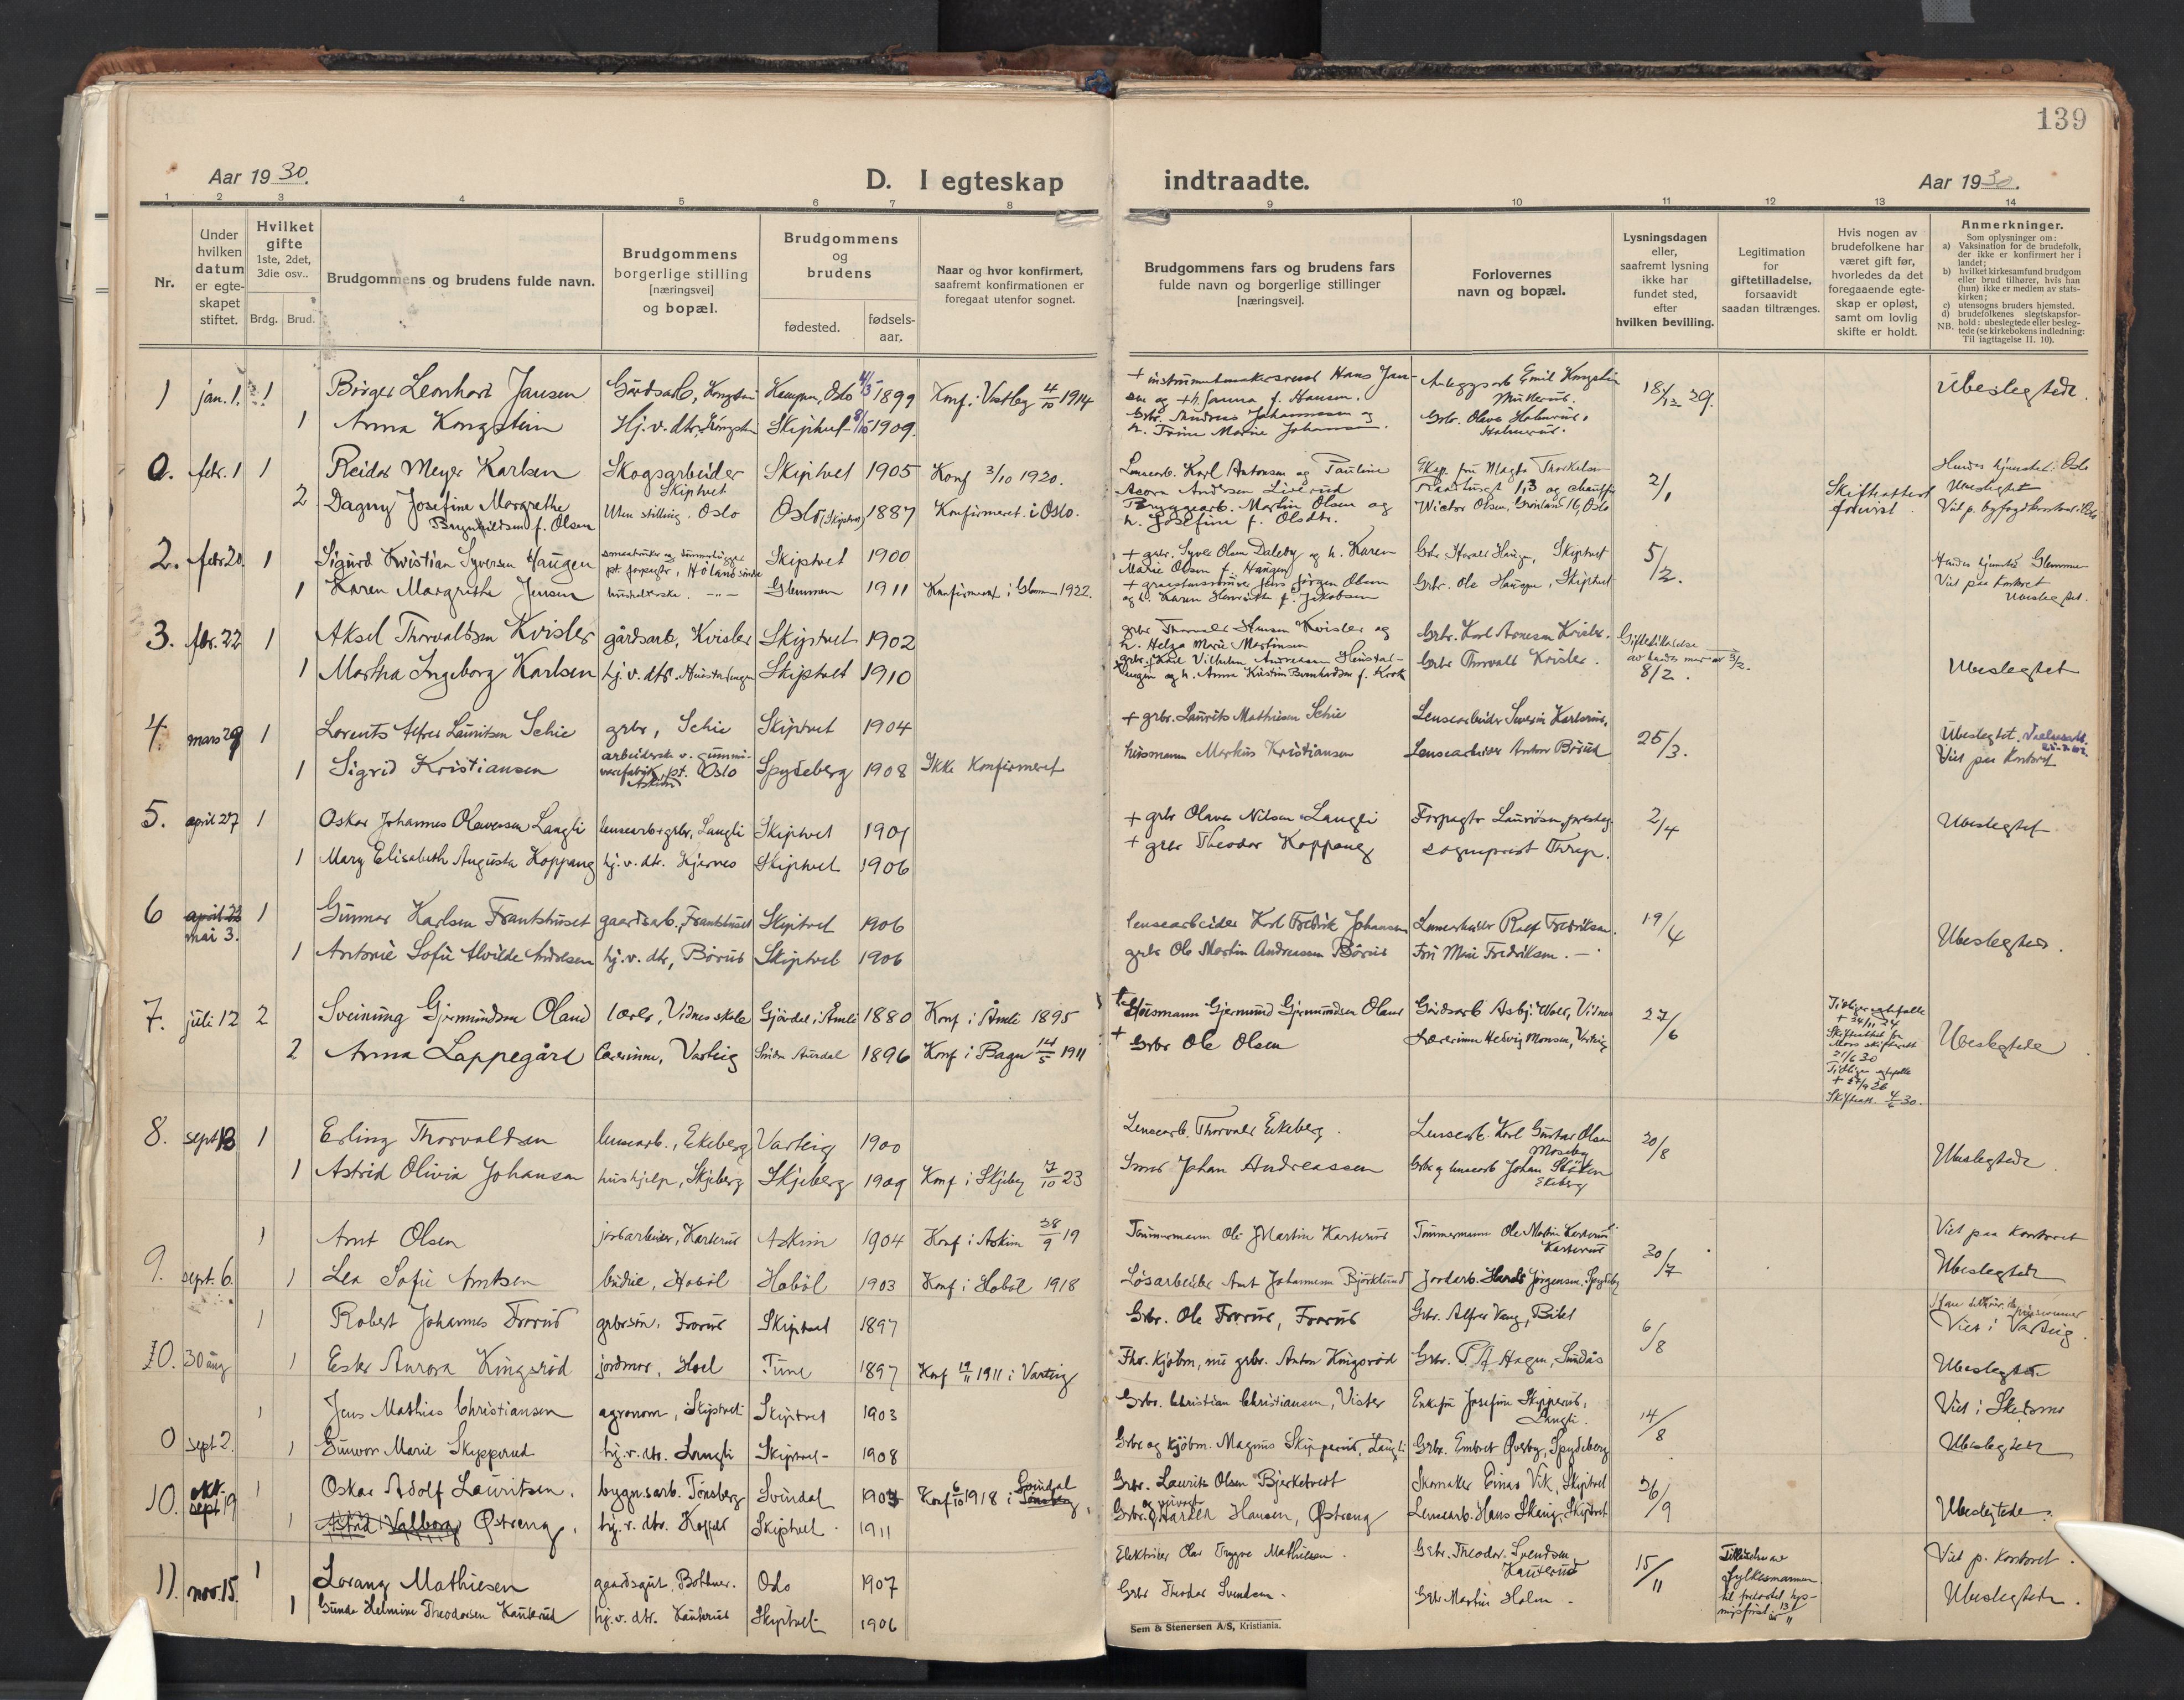 139
Aar 1930.
D. I egteskap indtraadte.
Aar 1930.
1 2 3 4 5 6 7 8 9 10 11 12 13 14
Nr.
Under hvilken datum er egteskapet stiftet.
Hvilket gifte 1ste, 2det, 3die osv..
Brdg. Brud.
Brudgommens og brudens fulde navn.
Brudgommens borgerlige stilling [næringsvei] og bopæl.
Brudgommens og brudens
fødested.
fødselsaar.
Naar og hvor konfirmert, saafremt konfirmationen er foregaat utenfor sognet.
Brudgommens fars og brudens fars fulde navn og borgerlige stillinger [næringsvei].
Forlovernes navn og bopæl.
Lysningsdagen eller, saafremt lysning ikke har fundet sted, efter hvilken bevilling.
Legitimation for giftetilladelse, forsaavidt saadan tiltrænges.
Hvis nogen av brudefolkene har været gift før, hvorledes da det foregaaende egteskap er opløst, samt om lovlig skifte er holdt.
Anmerkninger.
Som oplysninger om:
a) Vaksination for de brudefolk, der ikke er konfirmert her i landet;
b) hvilket kirkesamfund brudgom eller brud tilhører, hvis han (hun) ikke er medlem av statskirken;
c) utensogns bruders hjemsted.
d) brudefolkenes slegtskapsforhold: ubeslegtede eller beslegtede (se kirkebokens indledning:
NB. Til iagttagelse II. 10).
1 jan. 1. 1 Birger Leonhard Jansen Gårdsarb, Kongstein Kampen, Oslo 4/3 1899 Konf. i Vestby 4/10 1914
+ instrumentmakersvend Hans Jansen og + h. Janna f. Hansen. Anleggsarb Emil Kongstein 18/12 29. Ubeslegtede.
1 Anna Kongstein Hj.v. dtr, Kongstein Skiptvet 1909.
Grbr. Andreas Johannessen og h. Trine Marie Grbr. Olava
0. febr. 1 1 Reidar Meyer Karlsen Skogsarbeider Skiptvet Skiptvet 1905 Konf 3/10 1920.
Lensearb. Karl Antonsen og Pauline 2/1 Skifteattest forevist
2 Dagny Josefine Margrethe Brynhildsen f. Olsen Uten stilling. Oslo Oslo (Skiptvet) 1887 Konfirmeret i Oslo.
Bryggearb. Martin Olsen og h. Josefine f. Olsdtr. Victor Olsen, Grønland 16, Oslo
2. febr 20. 1 Sigurd Kristian Syversen Haugen Skiptvet 1900
+ grbr. Syver Olsen Daleby og h. Karen Marie Olsen f. Haugen Grbr Harald Haugen, Skiptvet 5/2. Hendes hjemsted Glemmen
1 Karen Margrethe Jensen husholderske. -"- Glemmen 1911 Konfirmeret i Glemmen 1922.
og h. Karen Henriette f. Jakobsen Grbr. Ole Haugen, Skiptvet Viet paa kontoret Ubeslegtet.
3. febr. 22 1 Aksel Thorvaldsen Kvisler gårdsarb, Kvisler Skiptvet 1902
grbr Thorvald Hansen Kvisler og h. Helga Marie Martinsen Grbr. Karl Arnesen Kvisler. Giftetilladelse av hendes mor av 3/2. 8/2.
1 Martha Ingeborg Karlsen hj.v. dtr. Skiptvet 1910
grbr. Karl Vilhelm Andreassen og h. Anna Kristine Bernhardsen f. Krok Grbr Thorvald Kvisler. Ubeslegtet
4. mars 29 1 Lorents Alfred Lauritsen Schie grbr, Schie Skiptvet 1904
+ grbr. Laurits Mathiesen Schie Lensearbeider Severin Karlsrud, 25/3. Ubeslegtet.
1 Sigrid Kristiansen arbeiderske v. gummivarefabrik, pt. Oslo Askim Spydeberg 1908 Ikke konfirmeret
husmann Markus Kristiansen Lensearbeider Anton Börud Viet paa kontoret
5. april 27 1 Oskar Johannes Olavessen Langli lensearb+grbr, Langli Skiptvet 1901
+ grbr Olaves Nilsen Langli Forpagter Lauritsen, prestegr. 2/4 Ubeslegtet
1 Mary Elisabeth Augusta Koppang hj.v. dtr. Hjernes Skiptvet 1906
+ grbr Theodor Koppang sogneprest Thrap.
6 april 26 mai 3. 1 Gunnar Karlsen Frantshuset gaardsarb., Frantshuset Skiptvet 1906
lensearbeider Karl Fredrik Johansen Lensearbeider Rolf Fredriksen. 19/4
1 Antonie Sofie Alvilde Andresen hj.v. dtr, Börud Skiptvet 1906
grbr Ole Martin Andreassen Börud Fru Marie Fredriksen. -"- Ubeslegtet.
7. juli 12 2 Sveinung Gjermundsen Oland lærer, Vidnes skole Gjövdal i Åmli 1880 Konf i Åmli 1895
+ Husmann Gjermund Gjermundsen Oland Gårdsarb Asbj. Wold, Vidnes 27/6 Tidligere egtefelle + 24/11 24 Skifteattest fra Moss skifterett 21/6 30
2 Anna Lappegård Lærerinne, Varteig Söndre Aurdal 1896 Konf i Bagn 14/5 1911
+ Grbr Ole Olsen Lærerinne Hedvig Monsen, Varteig Tidligere egtefelle + 27/9 26 Skifteatt. 4/6 30. Ubeslegtede
8. sept 13 1 Erling Thorvaldsen lensearb., Ekeberg Varteig 1900
Lensearb. Thorvald Ekeberg. Lensearb. Karl Gustav Olsen Moseby 20/8
1 Astrid Olivia Johansen hushjelp, Skjeberg Skjeberg 1909 Konf i Skjeberg 7/10 23
Smed Johan Andreassen Grbr og lensearb Johan Stöten Ekeberg Ubeslegtede.
9. sept. 6. 1 Arnt Olsen jordarbeider, Karterud Askim 1904 Konf i Askim 28/9 19
Tömmermann Ole Martin Karterud Tömmermann Ole Martin Karterud Karterud 30/7 Viet paa kontoret
1 Lea Sofie Arntsen budeie, Hobøl Hobøl 1903 Konf i Hobøl 1918
Løsarbeider Arnt Johannessen Björklund Jordarb. Harald Jörgensen, Spydeberg Ubeslegtede
10. 30 aug 1 Robert Johannes Frorud grbrsøn, Frorud Skiptvet 1897
Grbr. Ole Frorud, Frorud Grbr. Alfred Vang, Bibel 6/8 Viet i Varteig.
1 Ester Aurora Kingsrød jordmor, Hoel Tune 1897 Konf 19/11 1911 i Varteig
Fhv. kjøbm, nu grbr. Anton Kingsrød Grbr. P. A. Hagen, Sundås Ubeslegtede
0 sept 2. 1 Jens Mathias Christiansen agronom, Skiptvet Skiptvet 1903
Grbr. Christian Christiansen, Vister Enkefru Josefine Skipperud, Langli. 14/8 Viet i Skedsmo
1 Gunvor Marie Skipperud hj.v. dtr. Langli Skiptvet 1908
Grbr og kjøbm. Magnus Skipperud, Langli Grbr. Embret Øverby, Spydeberg Ubeslegtede
10. okt. sept 19 1 Oskar Adolf Lauritsen. bygn.sarb. Tønsberg Svindal 1903 Konf 6/10 1918 i Svindal Tønsberg.
Grbr. Laurits Olsen Bjerketvedt Skomaker Einar Vik, Skiptvet 26/9
1 Astrid Valborg Østreng. hj.v. dtr. Skiptvet 1911
Hansen, Østreng Lensearb. Hans Skaug, Skiptvet Ubeslegtede.
11. nov. 15. 1 Lorang Mathiesen gaardsgut, Bottner. Oslo 1907
Elektriker Olav Trygve Mathiesen. Grbr. Theodor Svendsen, Kauterud 15/11 Tilladelse av fylkesmannen Viet p. kontoret.
1 Gunda Helmine Theodorsen Kauterud hj.v. dtr. Kauterud Skiptvet 1906
Grbr Theodor Svendsen. Grbr Martin Holm. Ubeslegtede.
Sem & Stenersen A/S, Kristiania.